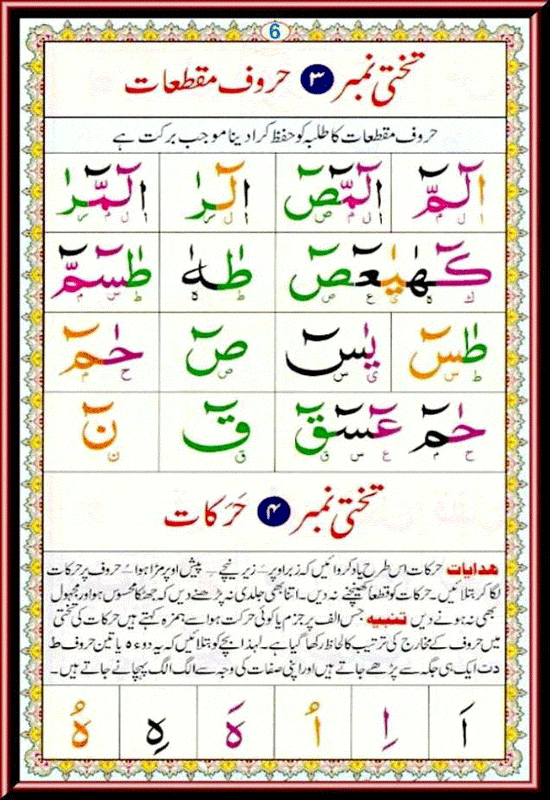 6
تختی نمبر ۳ حروف مقطعات
حروف مقطعات کا طلبہ کو حفظ کرا دینا موجب برکت ہے
الٓمّٓ الٓمّٓصٓ الٓرٰ الٓمّٓرٰ
ا ل م ا ل م ص ا ل ر ا ل م ر
كٓهٰيٰعٓصٓ طٰهٰ طٰسٓمّٓ
ك ه ی ع ص ط ه ط س م
طٰسٓ يٰسٓ صٓ حٰمٓ
ط س ی س ص ح م
حٰمٓ عٓسٓقٓ قٓ نٓ
ح م ع س ق ق ن
تختی نمبر ۴ حَرَکات
ھدایات حرکات اس طرح یاد کروائیں کہ زبر اوپر ـَ زیر نیچے ـِ پیش اوپر مڑا ہوا ـُ حروف پر حرکات
لگا کر بتلائیں۔ حرکات کو قطعاً کھینچنے نہ دیں۔ اتنا بھی جلدی نہ پڑھنے دیں کہ جھٹکا محسوس ہو اور مجہول
بھی نہ ہونے دیں تنبیہ جس الف پر جزم یا کوئی حرکت ہو اسے ہمزہ کہتے ہیں حرکات کی تختی
میں حروف کے مخارج کی ترتیب کا لحاظ رکھا گیا ہے۔ لہذا بچے کو بتلائیں کہ یہ دو ء ہ یا تین حروف ط
د ت ایک ہی جگہ سے پڑھے جاتے ہیں اور اپنی صفات کی وجہ سے الگ الگ پہچانے جاتے ہیں۔
اَ اِ اُ هَ هِ هُ